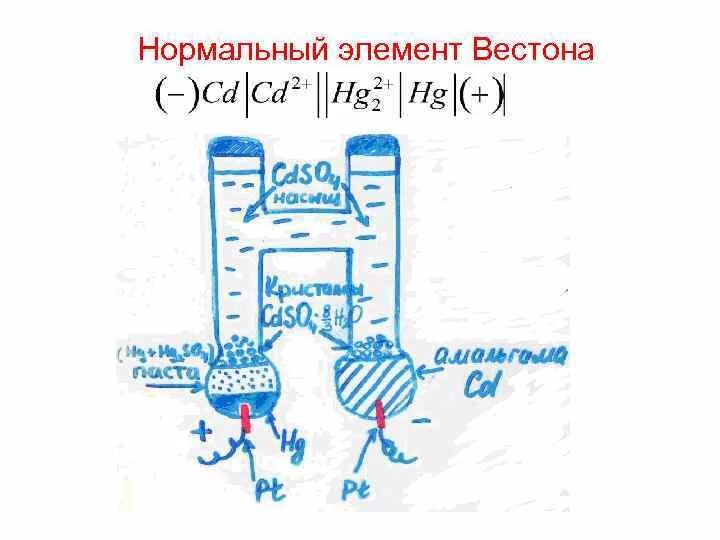 Нормальный элемент Вестона
(−)Cd|Cd²⁺||Hg₂²⁺|Hg|(+)
CdSO₄
насыщ
Кристаллы
CdSO₄·8/3H₂O
(Hg+Hg₂SO₄)
паста
амальгама
Cd
+
−
Hg
Pt
Pt